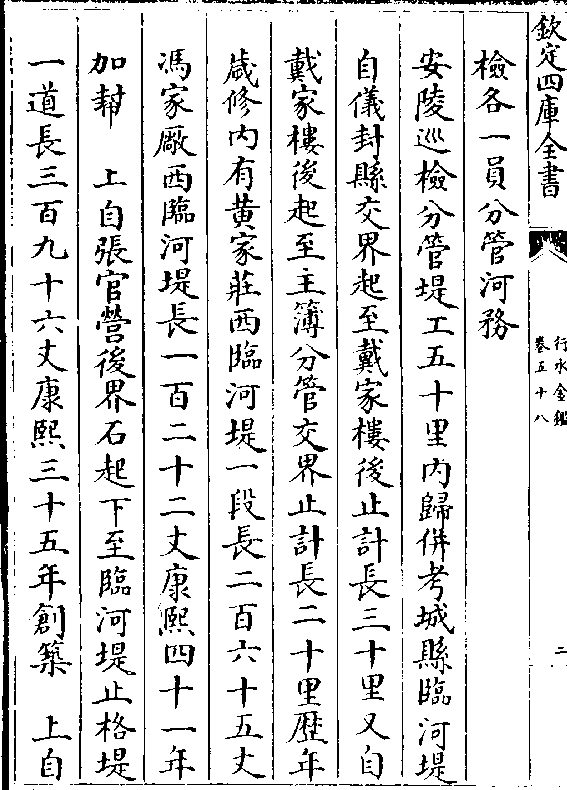 欽定四庫全書
行水金鑑
卷五十八
二
檢各一員分管河務
安陵巡檢分管堤工五十里内歸併考城縣臨河堤
自儀封縣交界起至戴家樓後止計長三十里又自
戴家樓後起至主簿分管交界止計長二十里歴年
歲修内有黄家莊西臨河堤一段長二百六十五丈
馮家廠西臨河堤長一百二十二丈康熙四十一年
加幇　上自張官營後界石起下至臨河堤止格堤
一道長三百九十六丈康熙三十五年創築　上自